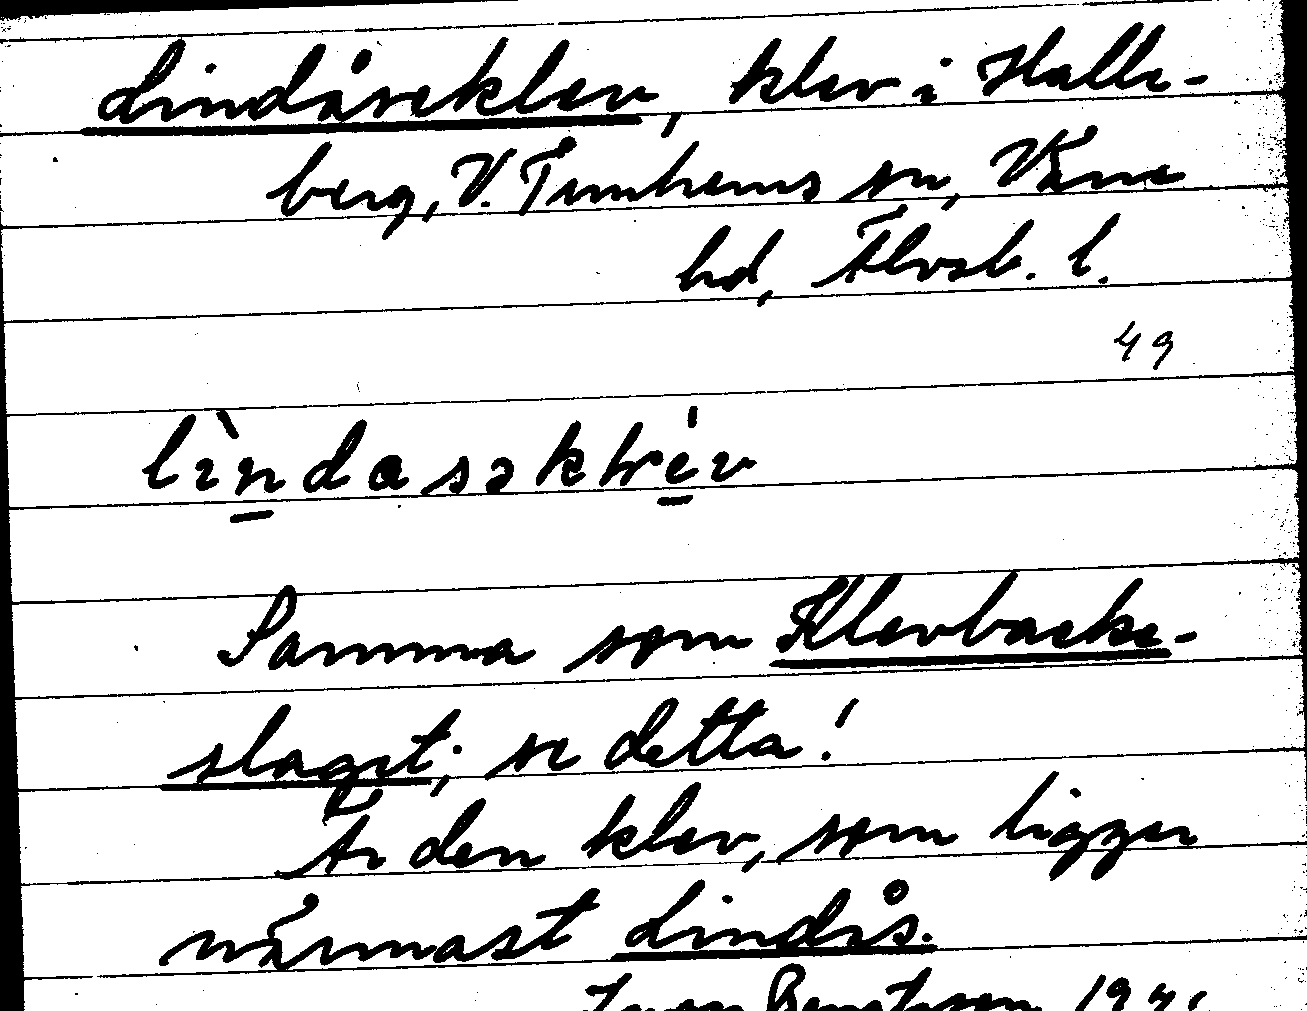 Lindåseklev, klev i Halle-
berg, V. Tunhems sn, Väne
hd, Älvsb. l.
49
lìndasəklrév
Samma som Klevbacke-
slaget; se detta!
Är den klev, som ligger
närmast Lindås.